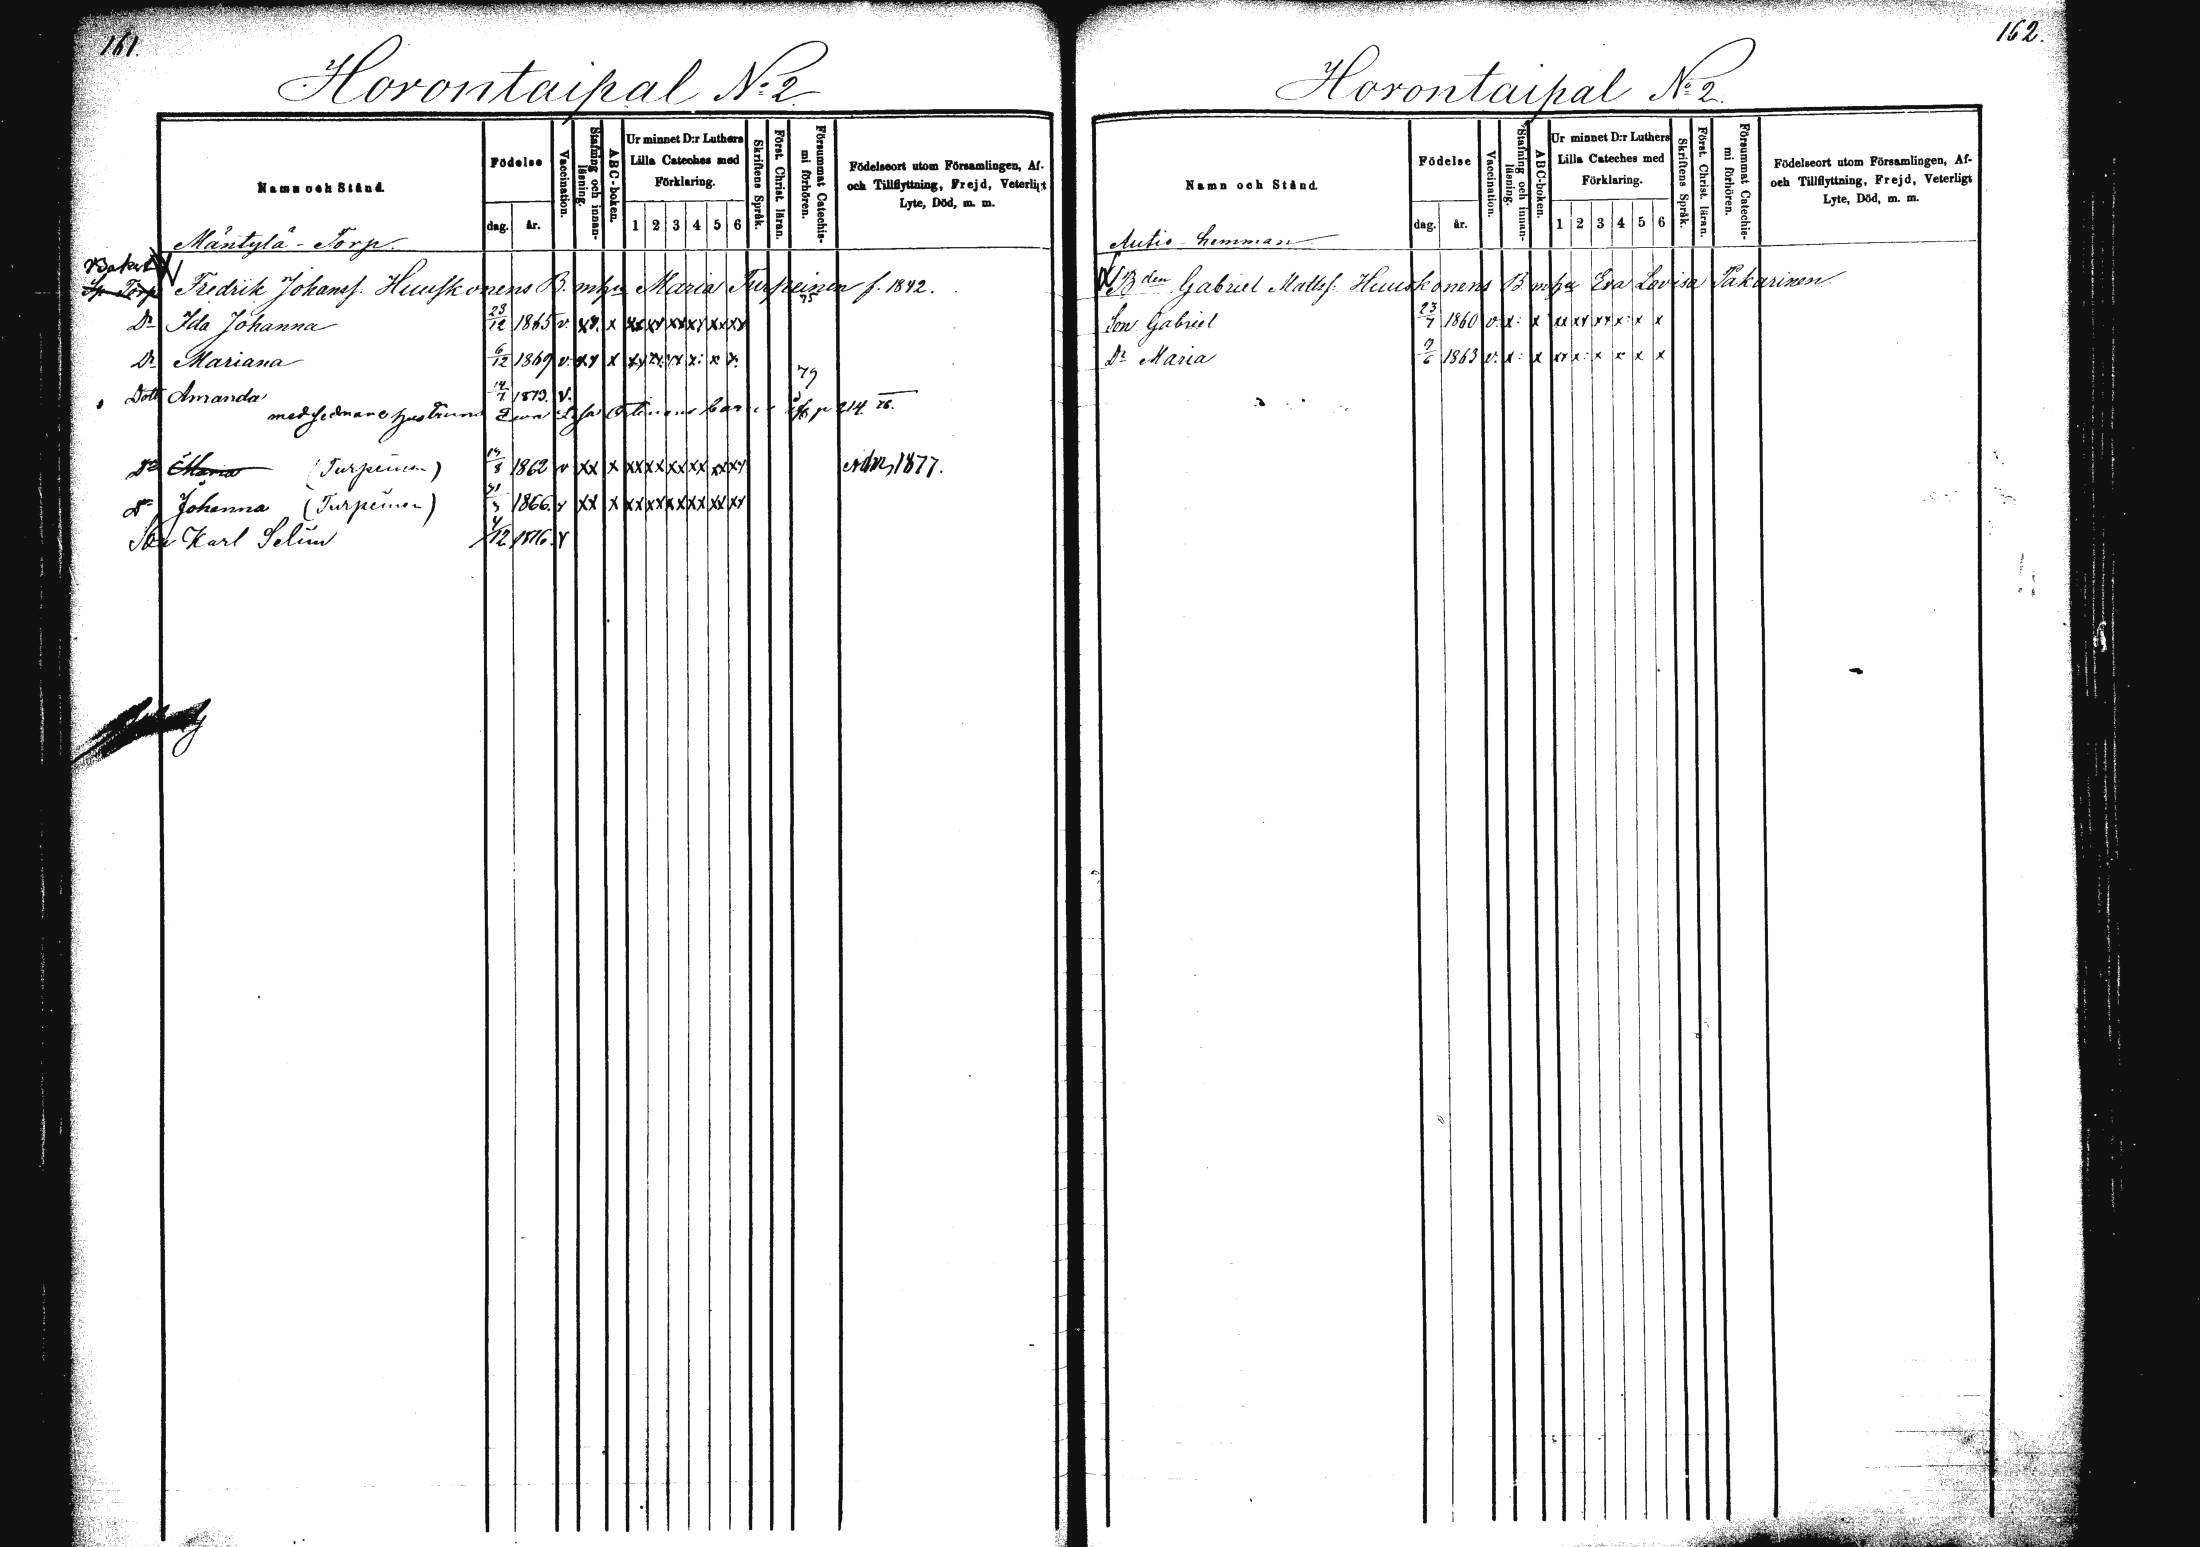 161.
Horontaipal No 2.
Namn och Stånd.
Födelse
dag. år.
Vaccination.
Stafning och innan-
läsning.
ABC-boken.
Ur minnet D:r Luthers
Lilla Cateches med
Förklaring.
1 2 3 4 5 6
Skriftens Språk.
Först. Christ. läran.
Försummat Catechis-
mi förhören.
Födelseort utom Församlingen, Af-
och Tillflyttning, Frejd, Veterligt
Lyte, Död, m. m.
Mäntylä - Torp.
Fredrik Johanss. Huuskonens B. m hu Maria Turpeinen f. 1842.
75
Dr Ida Johanna 23/12 1865 v. xx x xx xx xx xx xx xx
Dr Mariana 6/12 1869 v. xx x xx xx xx x: x x
79
Dott Amanda 14/7 1873. v.
p 214 76.
Dr Maria (Turpeinen) 1862 v xx x xx xx xx xx xx xx Adm, 1877.
Dr Johanna (Turpeinen) 1866. v xx x xx xx xx xx xx xx
Karl Selim 4/12 1876. v
162.
Horontaipal No 2.
Namn och Stånd.
Födelse
dag. år.
Vaccination.
Stafning och innan-
läsning.
ABC-boken.
Ur minnet D:r Luthers
Lilla Cateches med
Förklaring.
1 2 3 4 5 6
Skriftens Språk.
Först. Christ. läran.
Försummat Catechis-
mi förhören.
Födelseort utom Församlingen, Af-
och Tillflyttning, Frejd, Veterligt
Lyte, Död, m. m.
Autio - hemman
Bden Gabriel Matts. Huuskonens B m hu Eva Lovisa Pakarinen
Son Gabriel 23/7 1860 v. x: x xx xx xx x: x x
Dr Maria 9/6 1863 v. x: x xx x: x x x x